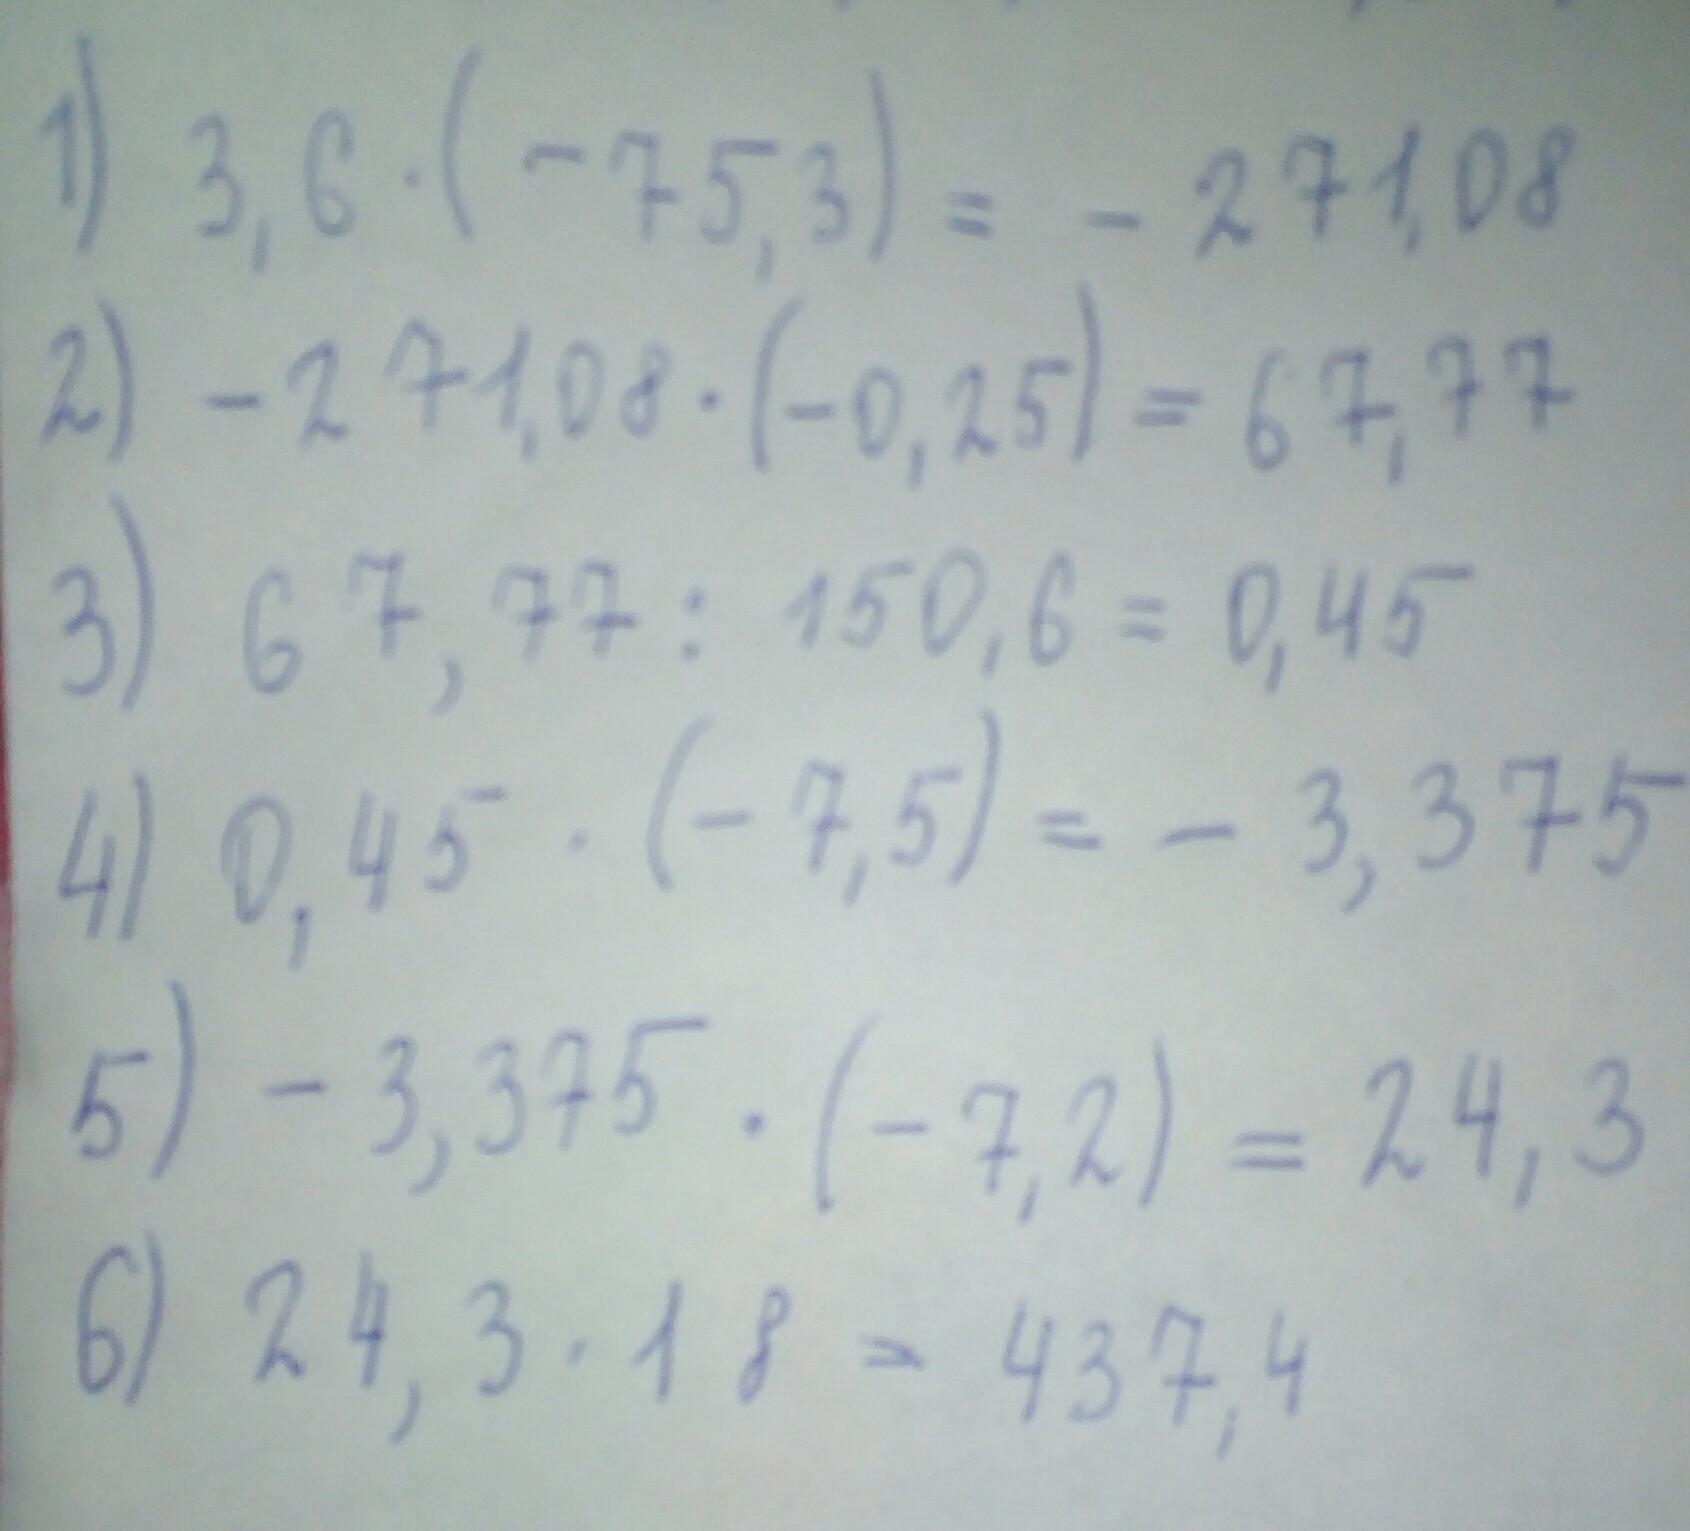 1) 3,6·(-75,3) = - 271,08
2) -271,08·(-0,25) = 67,77
3) 67,77 : 150,6 = 0,45
4) 0,45 · (-7,5) = - 3,375
5) - 3,375 · (-7,2) = 24,3
6) 24,3·18 = 437,4